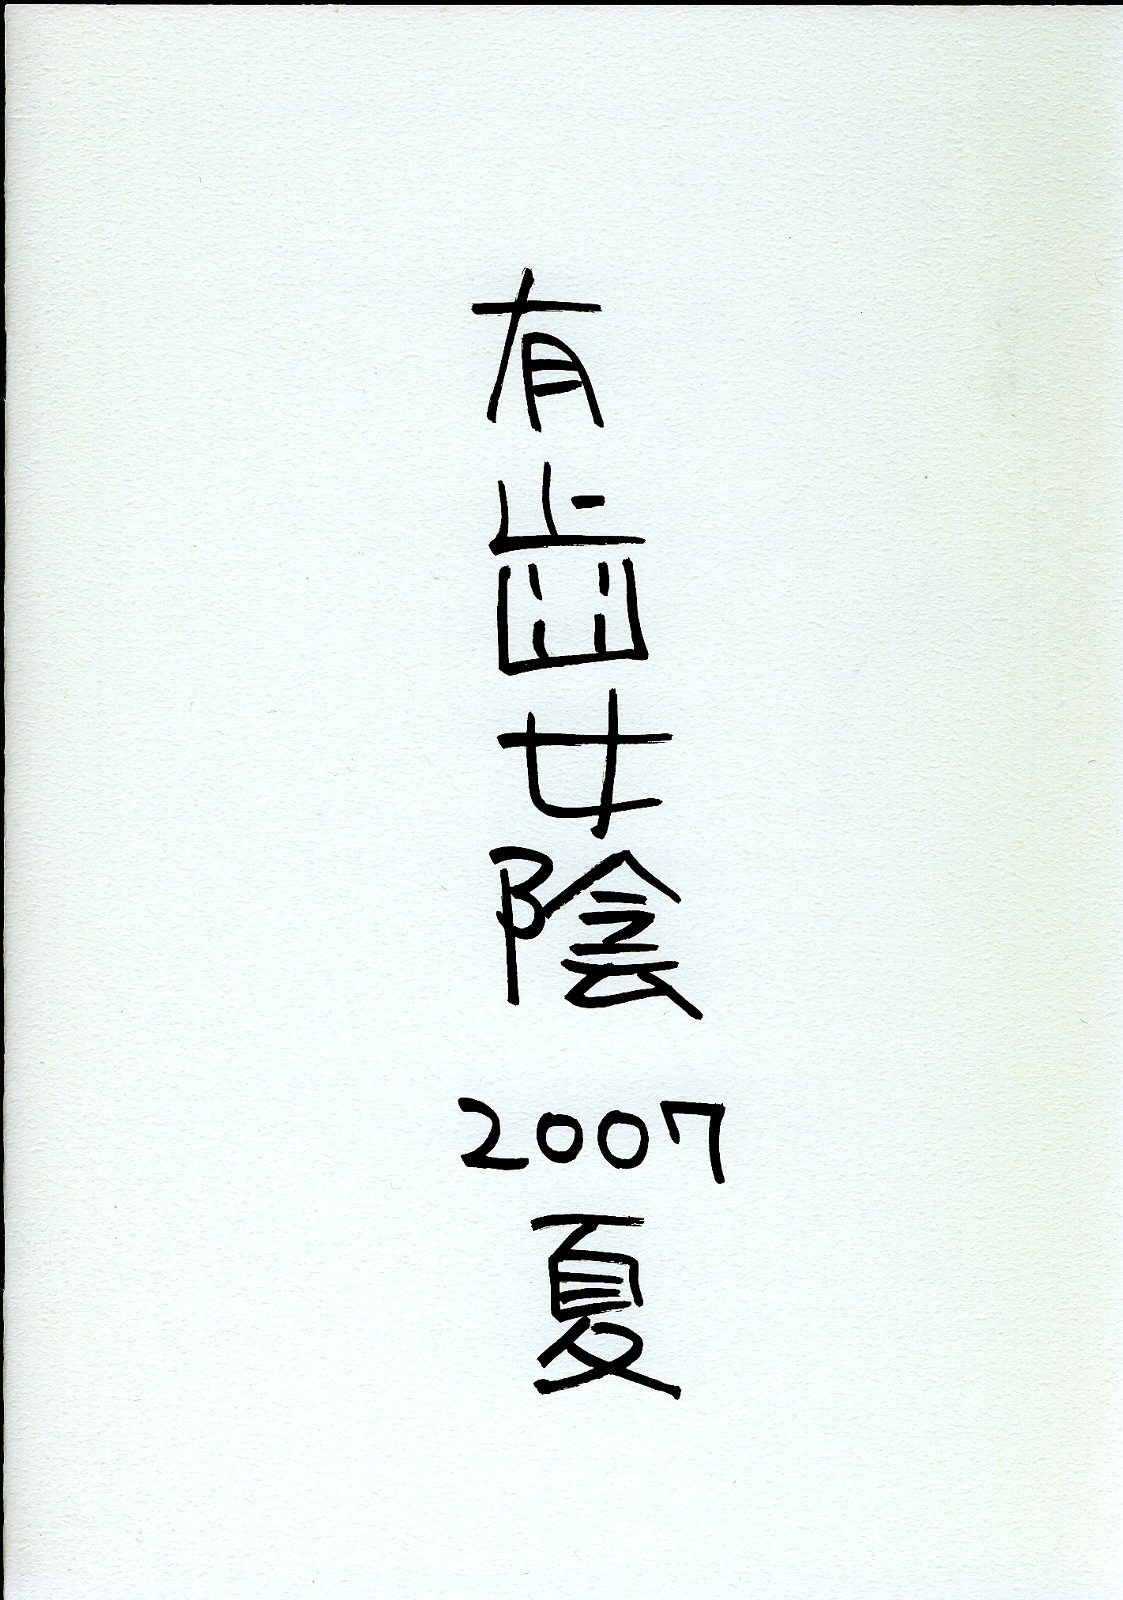 有歯女陰
2007
夏